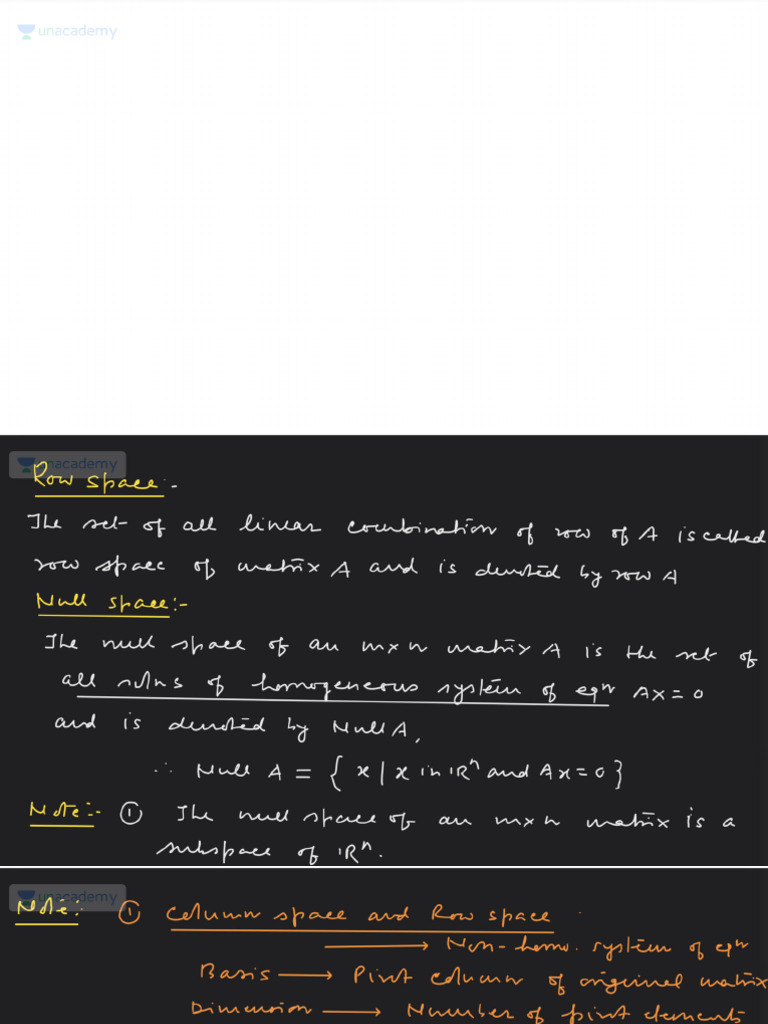 unacademy
unacademy
Row space :-
The set of all linear combination of row of A is called
row space of matrix A and is denoted by row A
Null space :-
The null space of an m×n matrix A is the set of
all solns of homogeneous system of eqn AX = 0
and is denoted by Null A,
∴ Null A = { x | x in ℝⁿ and Ax = 0 }
Note :- ① The null space of an m×n matrix is a
subspace of ℝⁿ.
unacademy
Note: ① Column space and Row space
⟶ Non-homo. system of eqn
Basis ⟶ Pivot column of original matrix
Dimension ⟶ Number of pivot elements